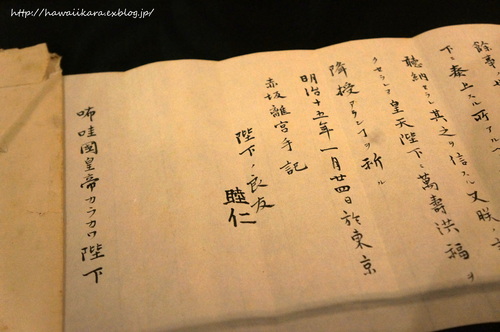 http://hawaiikara.exblog.jp/
下ニ奏上スル所ナル
聴納セラレ其之ヲ信スル又朕
クセラレ皇天陛下ニ萬壽洪福ヲ
降授アランコヲ祈ル
明治十五年一月廿四日於東京
赤坂離宮手記
陛下ノ良友
睦仁
哺哇國皇帝カラカワ陛下